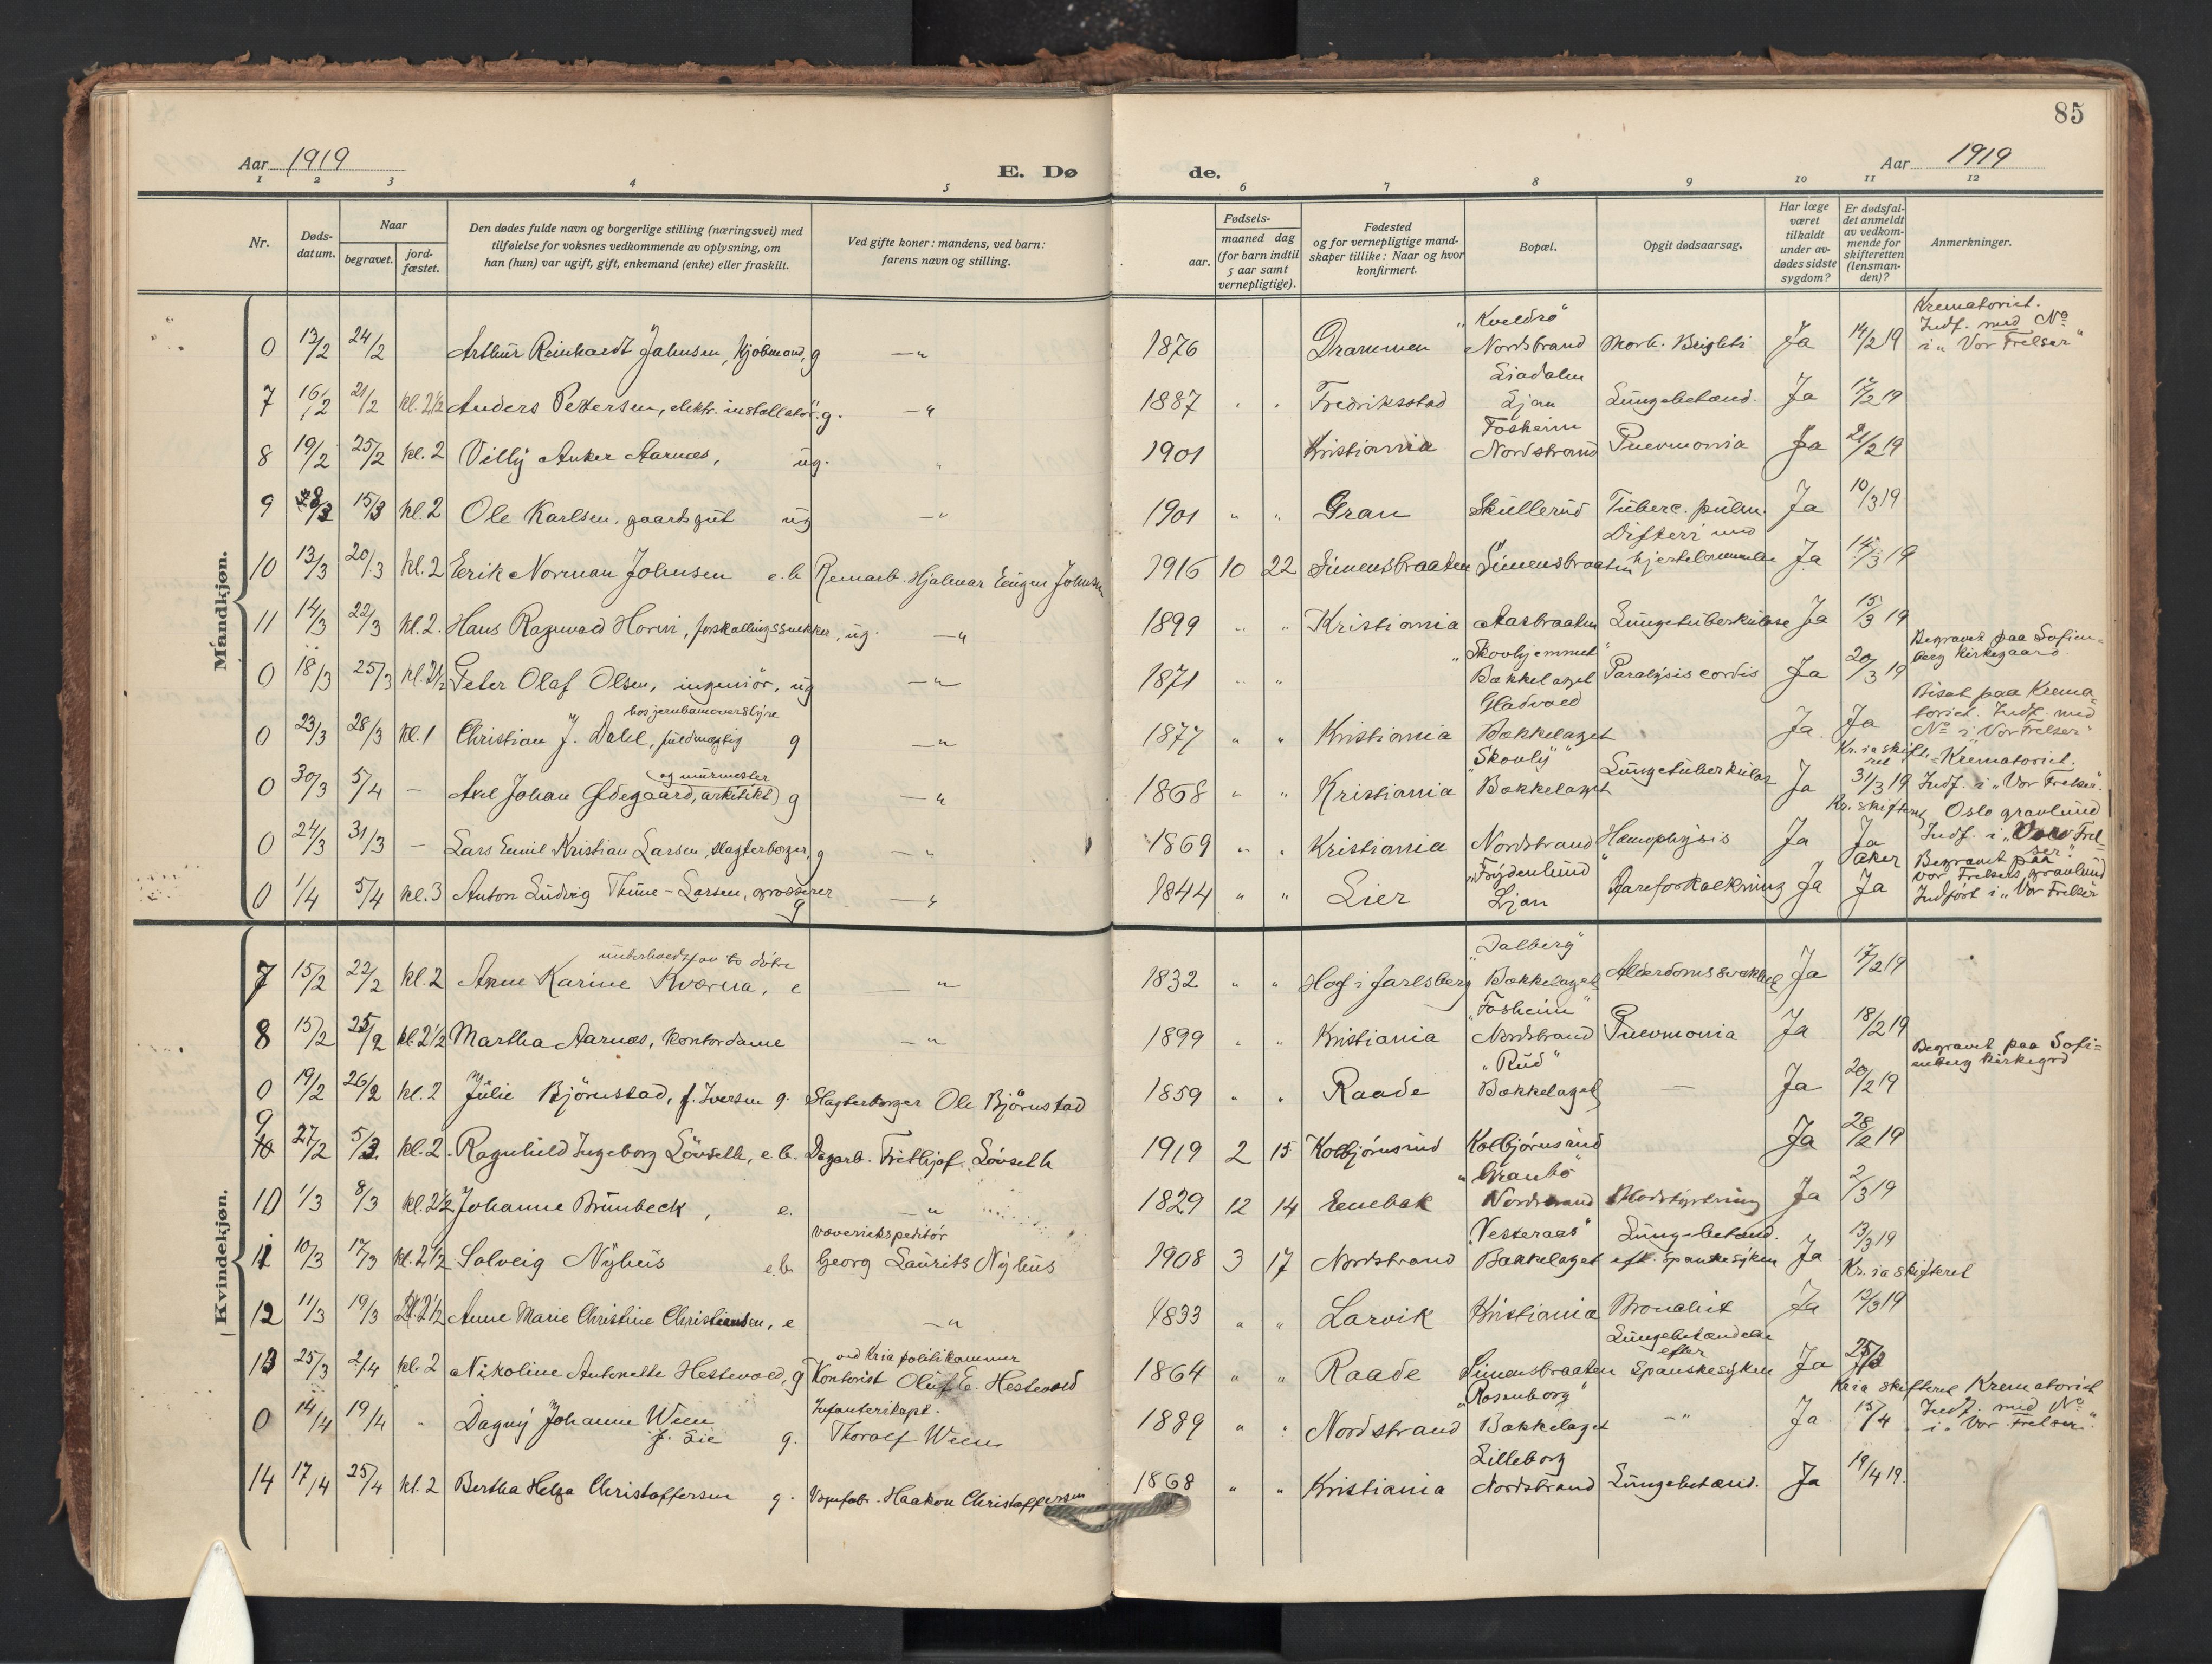 85
Aar 1919 E. Dø de. Aar 1919
1 2 3 4 5 6 7 8 9 10 11 12
Nr. Døds-datum. Naar begravet. jord-fæstet. Den dødes fulde navn og borgerlige stilling (næringsvei) med tilføielse for voksnes vedkommende av oplysning, om han (hun) var ugift, gift, enkemand (enke) eller fraskilt. Ved gifte koner: mandens, ved barn: farens navn og stilling. Fødsels- aar. maaned dag (for barn indtil 5 aar samt vernepligtige). Fødested og for vernepligtige mand-skaper tillike: Naar og hvor konfirmert. Bopæl. Opgit dødsaarsag. Har læge været tilkaldt under av-dødes sidste sygdom? Er dødsfal-det anmeldt av vedkom-mende for skifteretten (lensman-den)? Anmerkninger.
Mandkjøn.
0 13/2 24/2 Arthur Reinhardt Johnsen, kjøbmand, g —„ 1876 Drammen „Kveldro“ Nordstrand Morb. Brighti Ja 14/2 19 Krematoriet. Indf. med No i „Vor Frelser“
7 16/2 21/2 kl. 2½ Anders Pettersen, elektr. installatør g. —„ 1887 „ „ Fredriksstad Liadalen Ljan Lungebetænd. Ja 17/2 19
8 19/2 25/2 kl. 2 Villy Anker Aarnæs, ug. „ 1901 Kristiania Fosheim Nordstrand Pneumonia Ja 21/2 19
9 8/3 15/3 kl. 2 Ole Karlsen, gaardsgut ug —„ 1901 „ „ Gran Skullerud Tuberc. pulm. Ja 10/3 19
10 13/3 20/3 kl. 2 Erik Norman Johnsen e.b. Remarb. Hjalmar Eugen Johnsen 1916 10 22 Simensbraaten Simensbraaten Difteri med hjertelammelse Ja 14/3 19
11 14/3 22/3 kl. 2. Hans Ragnvald Horni, forskallingssnekker, ug. —„ 1899 „ „ Kristiania Aasbraaten Lungetuberkulose Ja 15/3 19
0 18/3 25/3 kl. 2½ Peter Olaf Olsen, ingeniør, ug —„ 1871 „ „ „Skovhjemmet“ Bækkelaget Paralysis cordis Ja 20/3 19 Begravet paa Sofien=berg kirkegaard
0 23/3 28/3 kl. 1 Christian J. Dahl, fuldmægtig hos jernbaneoverstyre g —„ 1877 „ „ Kristiania Gladvold Bækkelaget Ja Ja Bisat paa Krema=toriet. Indf. med No i „Vor Frelser“
0 30/3 5/4 — Axel Johan Ødegaard, arkitekt og murmester g —„ 1868 „ „ Kristiania „Skovly“ Bækkelaget Lungetuberkulos Ja Kr.ia skifte=ret 31/3 19 Krematoriet. Indf. i „Vor Frelser“.
0 24/3 31/3 — Lars Emil Kristian Larsen, slagterborger, g —„ 1869 „ „ Kristiania Nordstrand Hæmophysis Ja Kr. skifteret Ja Oslo gravlund Indf. i „Vor Frel=ser“.
0 1/4 5/4 kl. 3 Anton Ludvig Thune-Larsen, grosserer g —„ 1844 „ „ Lier „Frydenlund“ Ljan Aareforkalkning Ja Aker Ja Begravet paa Vor Frelsers gravlund Indført i „Vor Frelser“
Kvindekjøn.
7 15/2 22/2 kl. 2 Anne Karine Kværna, underholdt av to døtre e —„ 1832 „ „ Hof i Jarlsberg „Dalberg“ Bækkelaget Alderdomssvækkel Ja 17/2 19
8 15/2 25/2 kl. 2½ Martha Aarnæs, kontordame —„ 1899 „ „ Kristiania „Fosheim“ Nordstrand Pneumonia Ja 18/2 19
0 19/2 26/2 kl. 2 Julie Bjørnstad, f. Iversen g. Slagterborger Ole Bjørnstad 1859 „ „ Raade „Rud“ Bækkelaget — Ja 20/2 19 Begravet paa Sofi=enberg kirkegrd
9 27/2 5/3 kl. 2. Ragnhild Ingeborg Løvseth, e.b. Dagarb. Frithjof Løvseth 1919 2 15 Kolbjørnsrud Kolbjørnsrud Ja 28/2 19
10 1/3 8/3 kl. 2½ Johanne Brunbeck, e. —„ 1829 12 14 Enebak „Granbo“ Nordstrand Blodstyrtning Ja 2/3 19
11 10/3 17/3 kl. 2½ Solveig Nyhus e.b. Væveriekspeditør Georg Laurits Nyhus 1908 3 17 Nordstrand „Vesteraas“ Bækkelaget Lungebetænd. eft. spanskesyken Ja 13/3 19
12 11/3 19/3 kl. 2½ Anne Marie Christine Christiansen, e —„ 1833 „ „ Larvik Kristiania Bronchit Ja Kr.ia skifteret 12/3 19
13 25/3 2/4 kl. 2 Nikoline Antonette Hestevold, g Kontorist ved Kria politikammer Oluf E. Hestevold 1864 „ „ Raade Simensbraaten Lungebetændelse efter Spanskesyken Ja 25/3
0 14/4 19/4 „ Dagny Johanne Wien f. Lie g. Infanterikapt. Thoralf Wien 1889 „ „ Nordstrand „Rosenborg“ Bækkelaget —„ Ja Kria skifteret 15/4 Krematoriet Indf. med No i „Vor Frelser“.
14 17/4 25/4 kl. 2 Bertha Helga Christoffersen g. Vognfabr. Haakon Christoffersen 1868 „ „ Kristiania Lilleborg Nordstrand Lungebetænd. Ja 19/4 19.